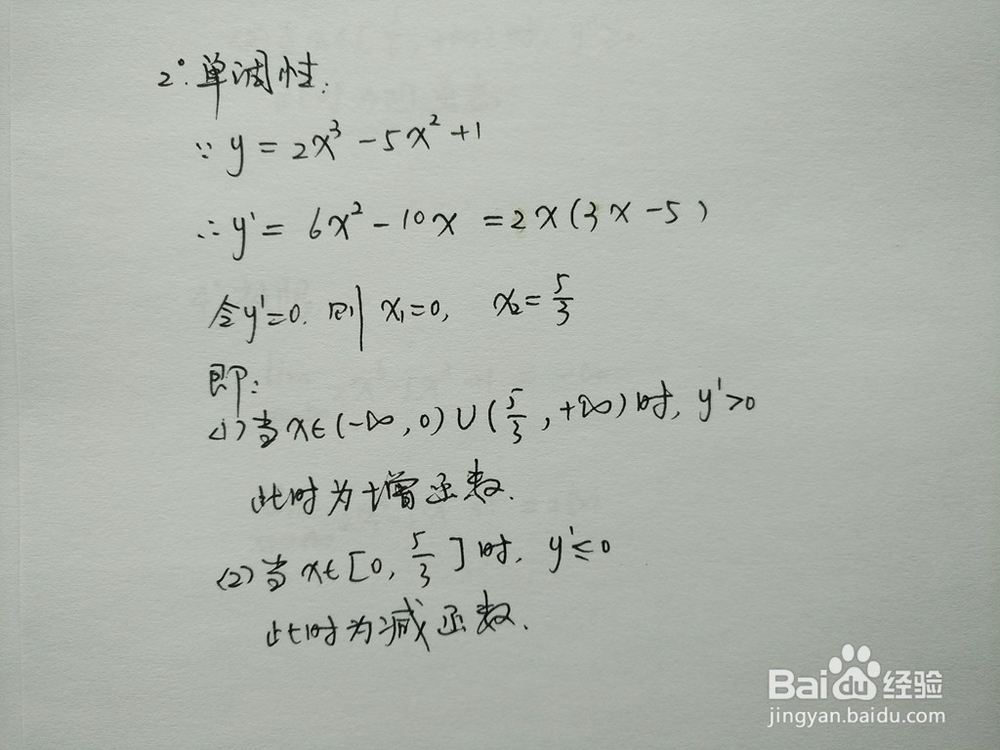 2°. 单调性:
∵ y = 2x³ - 5x² + 1
∴ y' = 6x² - 10x = 2x(3x - 5)
令y'=0. 则 x₁=0, x₂= 5/3
即:
(1) 当 x∈(-∞, 0)∪(5/3, +∞)时, y'>0
此时为增函数.
(2) 当 x∈[0, 5/3]时, y'≤0
此时为减函数.
Baidu经验
jingyan.baidu.com